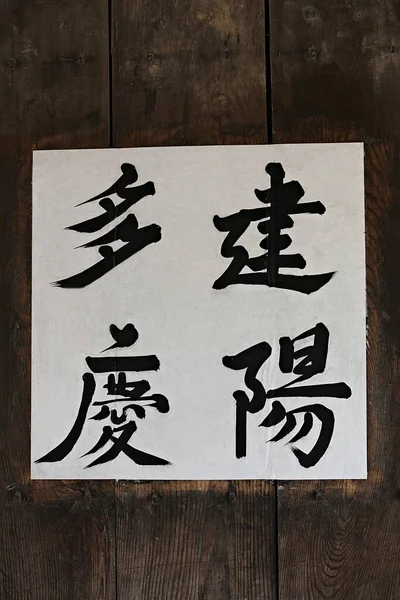 建陽
多慶